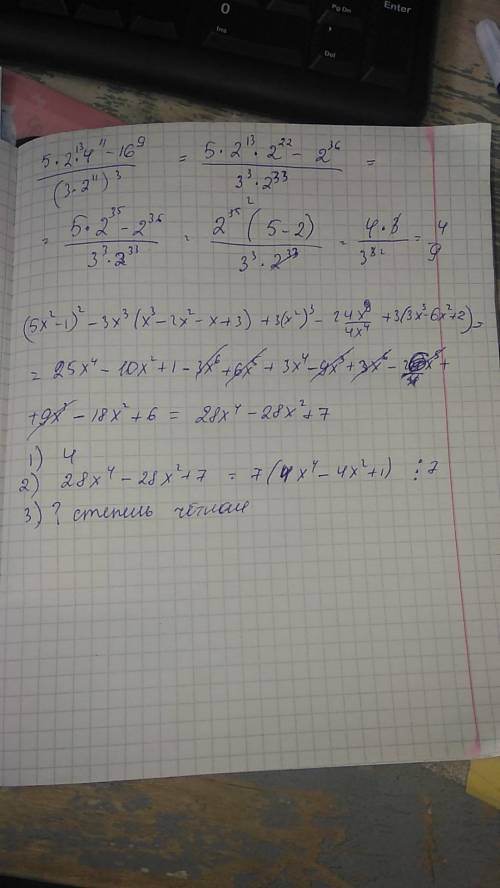 0
Ins
Pg Dn
Enter
Del
(5·2¹³·4¹¹ − 16⁹)/(3·2¹¹)³ = (5·2¹³·2²² − 2³⁶)/(3³·2³³) =
= (5·2³⁵ − 2³⁶)/(3³·2³³) = 2³⁵(5−2)/(3³·2³³) = 4·3/3³ = 4/9
(5x²−1)² − 3x³(x³−2x²−x+3) + 3(x²)³ − 24x⁹/4x⁴ + 3(3x³−6x²+2) =
= 25x⁴ − 10x² + 1 − 3x⁶ + 6x⁵ + 3x⁴ − 9x³ + 3x⁶ − x⁵ +
+ 9x³ − 18x² + 6 = 28x⁴ − 28x² + 7
1) 4
2) 28x⁴ − 28x² + 7 = 7(4x⁴ − 4x² + 1) ⋮ 7
3) ? степень чётная